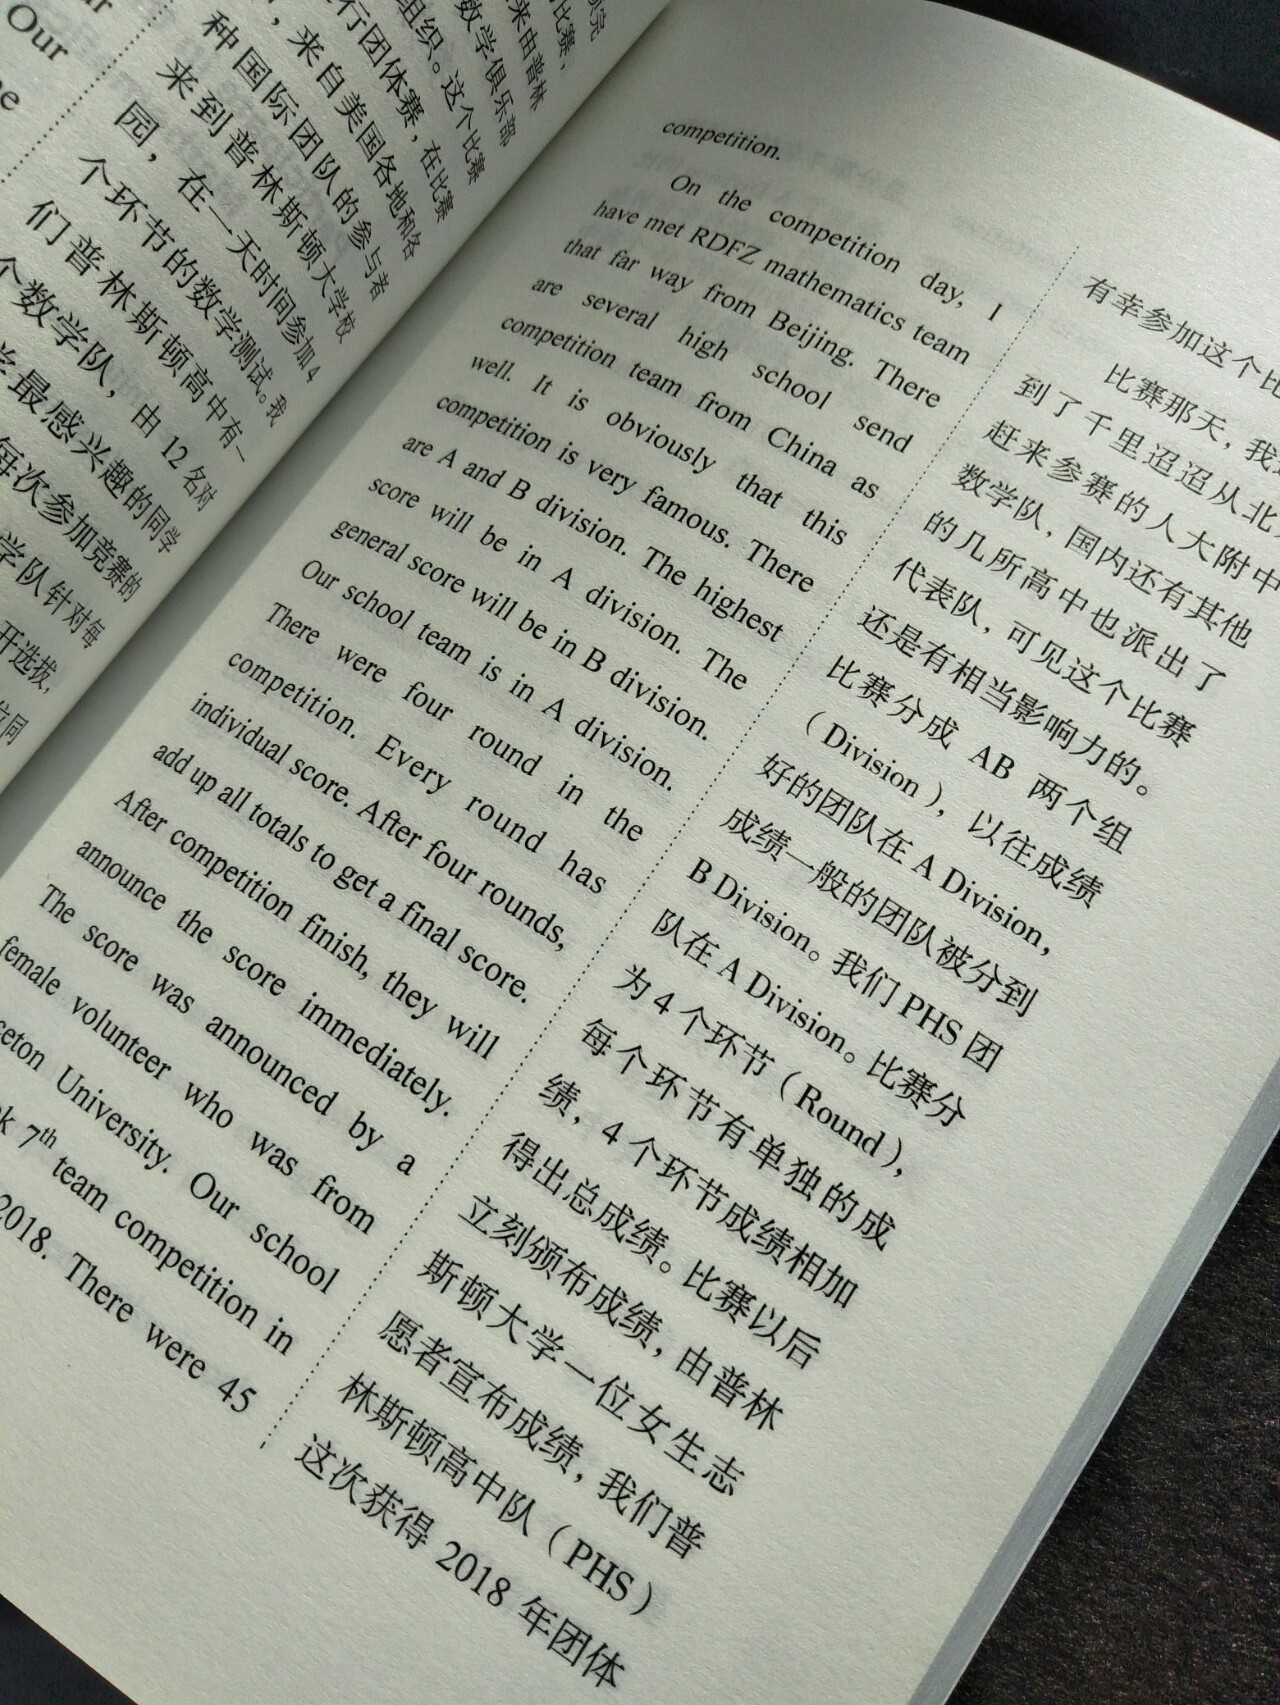 Our
种国际团队的参与者
来到普林斯顿大学校
园，在一天时间参加4
个环节的数学测试。我
们普林斯顿高中有一
个数学队，由 12 名对
最感兴趣的同学
每次参加竞赛的
学队针对每
开选拔，
行团体赛，在比赛
，来自美国各地和各
组织。这个比赛
数学俱乐部
来由普林
比赛，
competition.
On the competition day, I
have met RDFZ mathematics team
that far way from Beijing. There
are several high school send
competition team from China as
well. It is obviously that this
competition is very famous. There
are A and B division. The highest
score will be in A division. The
general score will be in B division.
Our school team is in A division.
There were four round in the
competition. Every round has
individual score. After four rounds,
add up all totals to get a final score.
After competition finish, they will
announce the score immediately.
The score was announced by a
female volunteer who was from
ceton University. Our school
k 7th team competition in
2018. There were 45
有幸参加这个比
比赛那天，我
到了千里迢迢从北
赶来参赛的人大附中
数学队，国内还有其他
的几所高中也派出了
代表队，可见这个比赛
还是有相当影响力的。
比赛分成 AB 两个组
（Division），以往成绩
好的团队在 A Division，
成绩一般的团队被分到
B Division。我们 PHS 团
队在 A Division。比赛分
为 4 个环节（Round），
每个环节有单独的成
绩，4 个环节成绩相加
得出总成绩。比赛以后
立刻颁布成绩，由普林
斯顿大学一位女生志
愿者宣布成绩，我们普
林斯顿高中队（PHS）
这次获得 2018 年团体